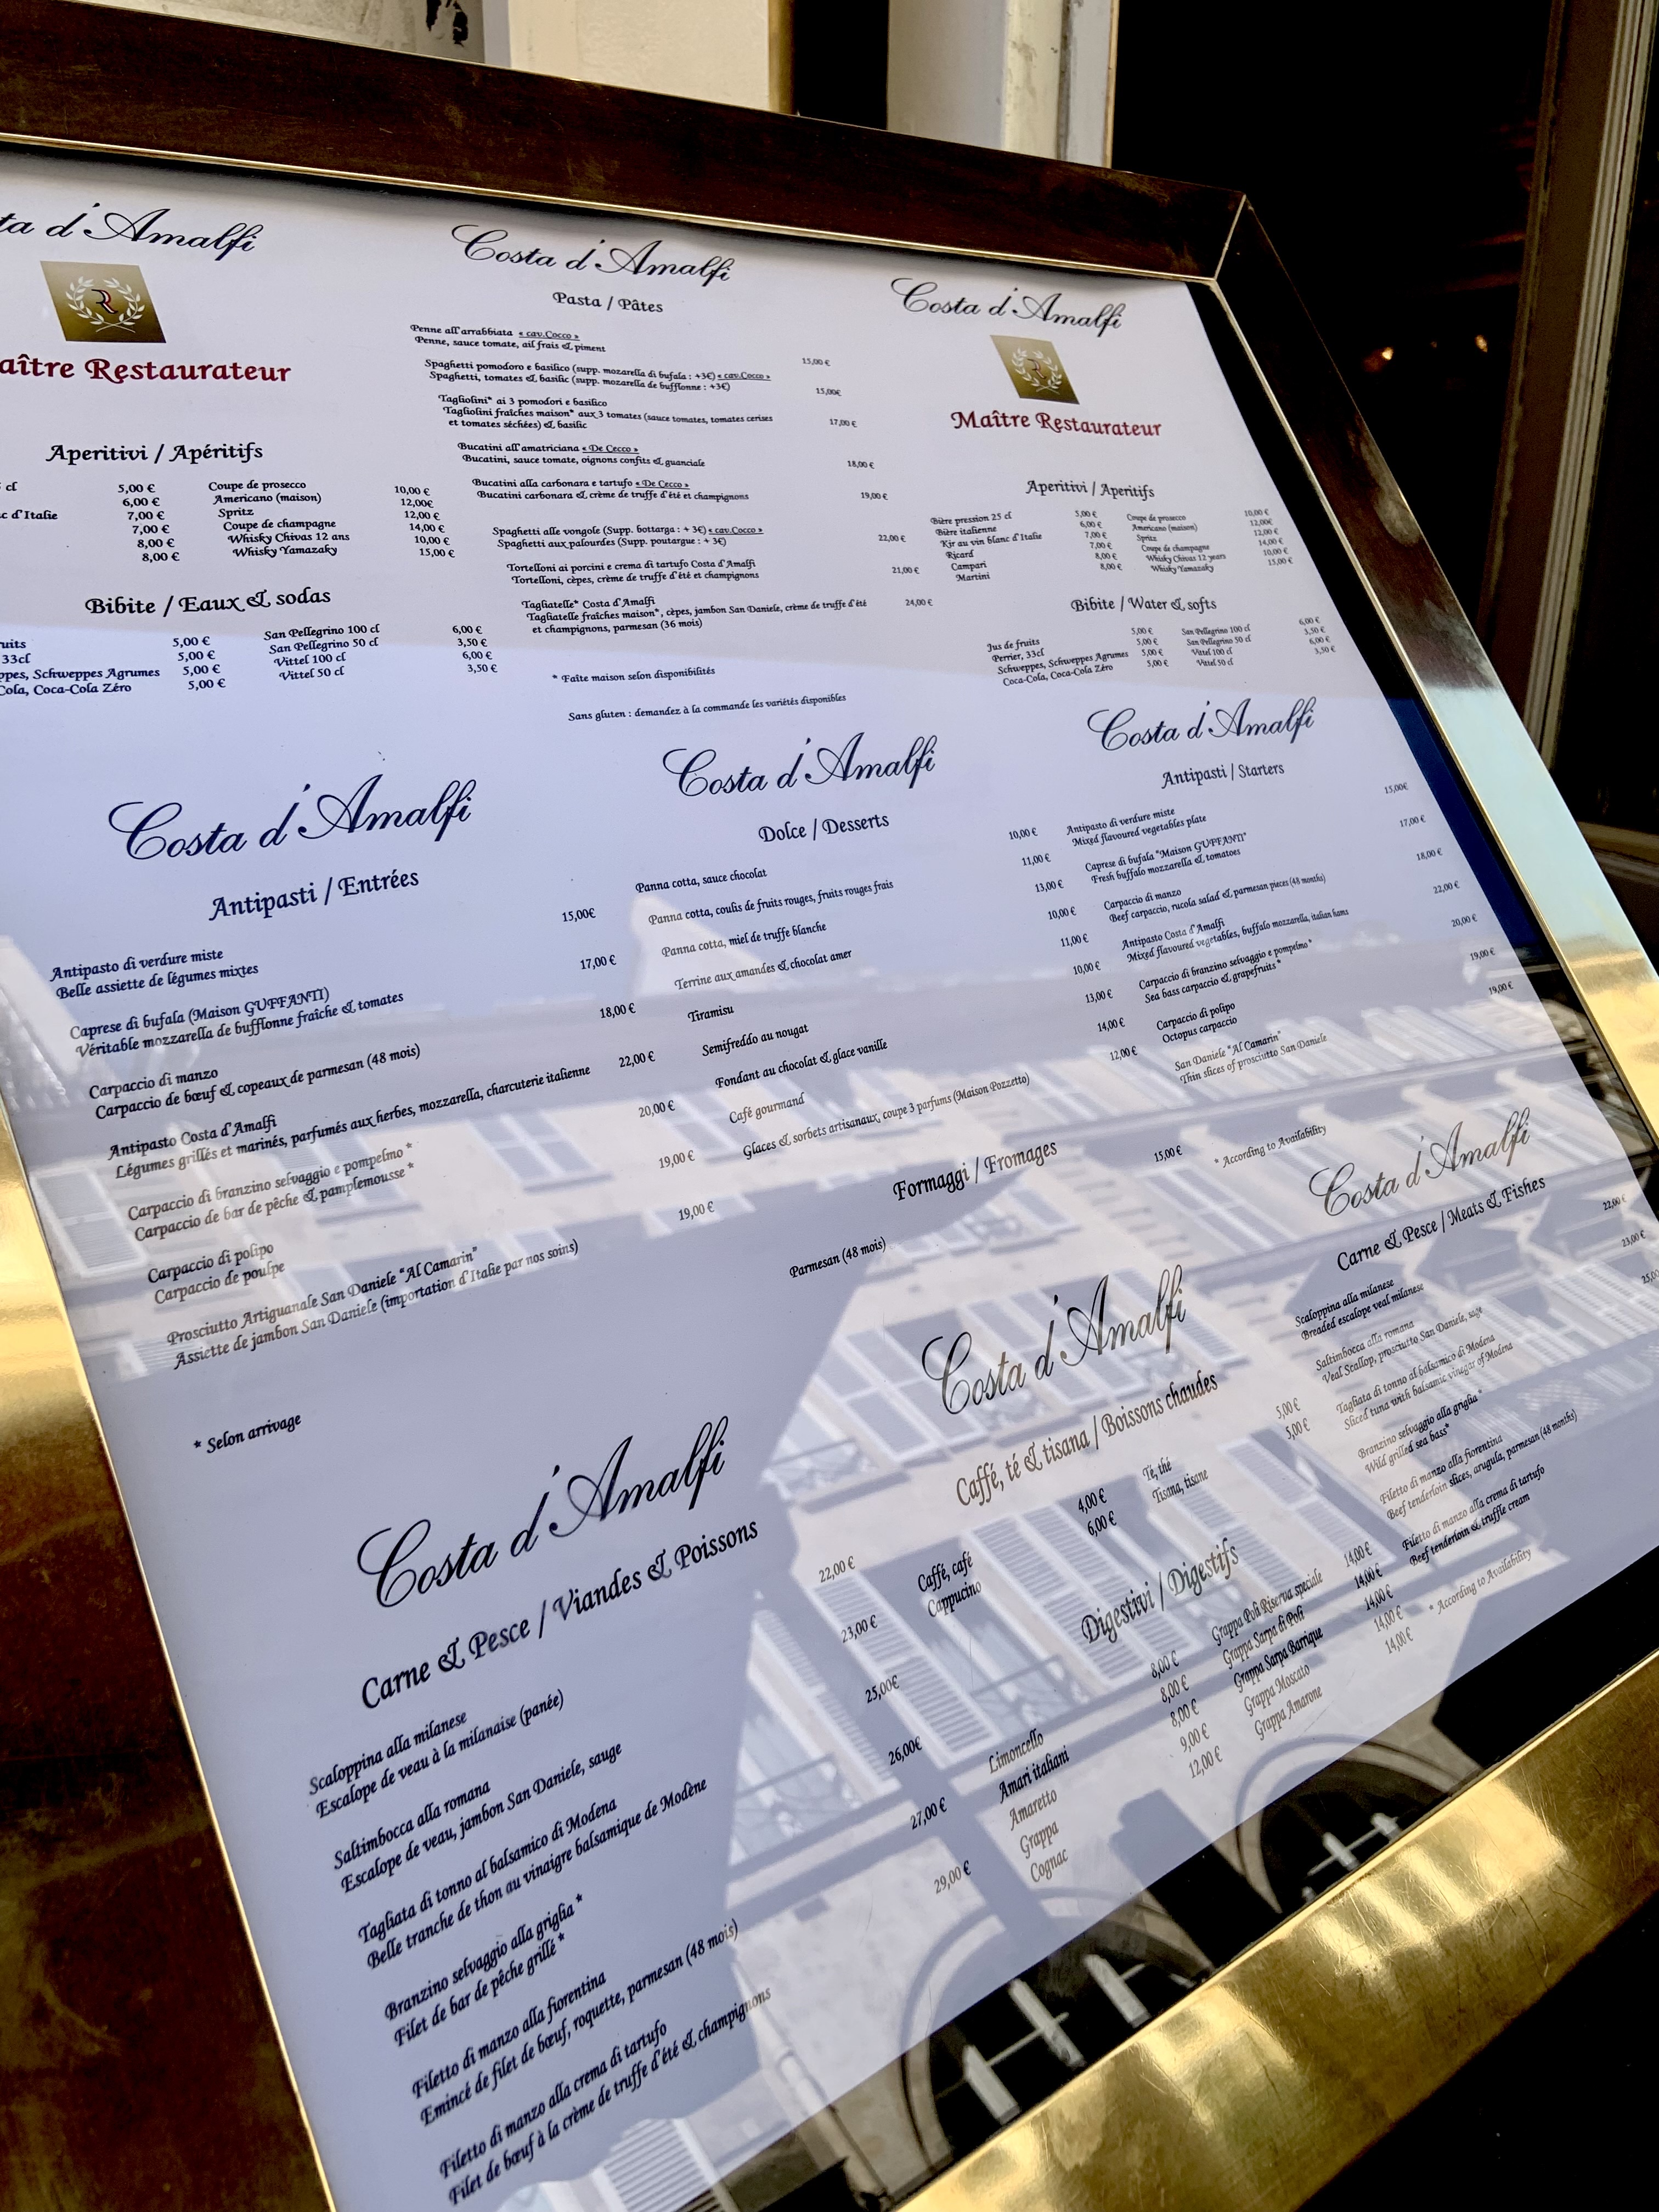 ta d'Amalfi
R
aître Restaurateur
Aperitivi / Apéritifs
cl 5,00 € Coupe de prosecco 10,00 €
6,00 € Americano (maison) 12,00€
c d'Italie 7,00 € Spritz 12,00 €
7,00 € Coupe de champagne 14,00 €
8,00 € Whisky Chivas 12 ans 10,00 €
8,00 € Whisky Yamazaky 15,00 €
Bibite / Eaux & sodas
ruits 5,00 € San Pellegrino 100 cl 6,00 €
33cl 5,00 € San Pellegrino 50 cl 3,50 €
ppes, Schweppes Agrumes 5,00 € Vittel 100 cl 6,00 €
Cola, Coca-Cola Zéro 5,00 € Vittel 50 cl 3,50 €
Costa d'Amalfi
Antipasti / Entrées
Antipasto di verdure miste 15,00€
Belle assiette de légumes mixtes
Caprese di bufala (Maison GUFFANTI) 17,00 €
Véritable mozzarella de bufflonne fraîche & tomates
Carpaccio di manzo 18,00 €
Carpaccio de bœuf & copeaux de parmesan (48 mois)
Antipasto Costa d'Amalfi 22,00 €
Légumes grillés et marinés, parfumés aux herbes, mozzarella, charcuterie italienne
Carpaccio di branzino selvaggio e pompelmo * 20,00 €
Carpaccio de bar de pêche & pamplemousse *
Carpaccio di polipo 19,00 €
Carpaccio de poulpe
Prosciutto Artiguanale San Daniele "Al Camarin" 19,00 €
Assiette de jambon San Daniele (importation d'Italie par nos soins)
* Selon arrivage
Costa d'Amalfi
Carne & Pesce / Viandes & Poissons
Scaloppina alla milanese 22,00 €
Escalope de veau à la milanaise (panée)
Saltimbocca alla romana 23,00 €
Escalope de veau, jambon San Daniele, sauge
Tagliata di tonno al balsamico di Modena 25,00€
Belle tranche de thon au vinaigre balsamique de Modène
Branzino selvaggio alla griglia * 26,00€
Filet de bar de pêche grillé *
Filetto di manzo alla fiorentina 27,00 €
Emincé de filet de bœuf, roquette, parmesan (48 mois)
Filetto di manzo alla crema di tartufo 29,00 €
Filet de bœuf à la crème de truffe d'été & champignons
Costa d'Amalfi
Pasta / Pâtes
Penne all'arrabbiata « cav.Cocco »
Penne, sauce tomate, ail frais & piment 15,00 €
Spaghetti pomodoro e basilico (supp. mozarella di bufala : +3€) « cav.Cocco »
Spaghetti, tomates & basilic (supp. mozarella de bufflonne : +3€) 15,00€
Tagliolini* ai 3 pomodori e basilico
Tagliolini fraîches maison* aux 3 tomates (sauce tomates, tomates cerises
et tomates séchées) & basilic 17,00 €
Bucatini all'amatriciana « De Cecco »
Bucatini, sauce tomate, oignons confits & guanciale 18,00 €
Bucatini alla carbonara e tartufo « De Cecco »
Bucatini carbonara & crème de truffe d'été et champignons 19,00 €
Spaghetti alle vongole (Supp. bottarga : + 3€) « cav.Cocco »
Spaghetti aux palourdes (Supp. poutargue : + 3€) 22,00 €
Tortelloni ai porcini e crema di tartufo Costa d'Amalfi
Tortelloni, cèpes, crème de truffe d'été et champignons 21,00 €
Tagliatelle* Costa d'Amalfi
Tagliatelle fraîches maison*, cèpes, jambon San Daniele, crème de truffe d'été 24,00 €
et champignons, parmesan (36 mois)
* Faîte maison selon disponibilités
Sans gluten : demandez à la commande les variétés disponibles
Costa d'Amalfi
Dolce / Desserts
Panna cotta, sauce chocolat 10,00 €
Panna cotta, coulis de fruits rouges, fruits rouges frais 11,00 €
Panna cotta, miel de truffe blanche 13,00 €
Terrine aux amandes & chocolat amer 10,00 €
Tiramisu 11,00 €
Semifreddo au nougat 10,00 €
Fondant au chocolat & glace vanille 13,00 €
Café gourmand 14,00 €
Glaces & sorbets artisanaux, coupe 3 parfums (Maison Pozzetto) 12,00 €
Formaggi / Fromages
Parmesan (48 mois) 15,00 €
Costa d'Amalfi
Caffé, té & tisana / Boissons chaudes
Caffé, café 4,00 € Té, thé 5,00 €
Cappucino 6,00 € Tisana, tisane 5,00 €
Digestivi / Digestifs
Limoncello 8,00 € Grappa Poli Riserva speciale 14,00 €
Amari italiani 8,00 € Grappa Sarpa di Poli 14,00 €
Amaretto 8,00 € Grappa Sarpa Barrique 14,00 €
Grappa 9,00 € Grappa Moscato 14,00 €
Cognac 12,00 € Grappa Amarone 14,00 €
Costa d'Amalfi
Maître Restaurateur
Aperitivi / Aperitifs
Bière pression 25 cl 5,00 € Coupe de prosecco 10,00 €
Bière italienne 6,00 € Americano (maison) 12,00€
Kir au vin blanc d'Italie 7,00 € Spritz 12,00 €
Ricard 7,00 € Coupe de champagne 14,00 €
Campari 8,00 € Whisky Chivas 12 years 10,00 €
Martini 8,00 € Whisky Yamazaky 15,00 €
Bibite / Water & softs
Jus de fruits 5,00 € San Pellegrino 100 cl 6,00 €
Perrier, 33cl 5,00 € San Pellegrino 50 cl 3,50 €
Schweppes, Schweppes Agrumes 5,00 € Vittel 100 cl 6,00 €
Coca-Cola, Coca-Cola Zéro 5,00 € Vittel 50 cl 3,50 €
Costa d'Amalfi
Antipasti / Starters
Antipasto di verdure miste 15,00€
Mixed flavoured vegetables plate
Caprese di bufala "Maison GUFFANTI" 17,00 €
Fresh buffalo mozzarella & tomatoes
Carpaccio di manzo 18,00 €
Beef carpaccio, rucola salad & parmesan pieces (48 months)
Antipasto Costa d'Amalfi 22,00 €
Mixed flavoured vegetables, buffalo mozzarella, italian hams
Carpaccio di branzino selvaggio e pompelmo * 20,00 €
Sea bass carpaccio & grapefruits *
Carpaccio di polipo 19,00 €
Octopus carpaccio
San Daniele "Al Camarin" 19,00 €
Thin slices of prosciutto San Daniele
* According to Availability
Costa d'Amalfi
Carne & Pesce / Meats & Fishes
Scaloppina alla milanese 22,00 €
Breaded escalope veal milanese
Saltimbocca alla romana 23,00 €
Veal Scallop, prosciutto San Daniele, sage
Tagliata di tonno al balsamico di Modena 25,00
Sliced tuna with balsamic vinegar of Modena
Branzino selvaggio alla griglia *
Wild grilled sea bass*
Filetto di manzo alla fiorentina
Beef tenderloin slices, arugula, parmesan (48 months)
Filetto di manzo alla crema di tartufo
Beef tenderloin & truffle cream
* According to Availability